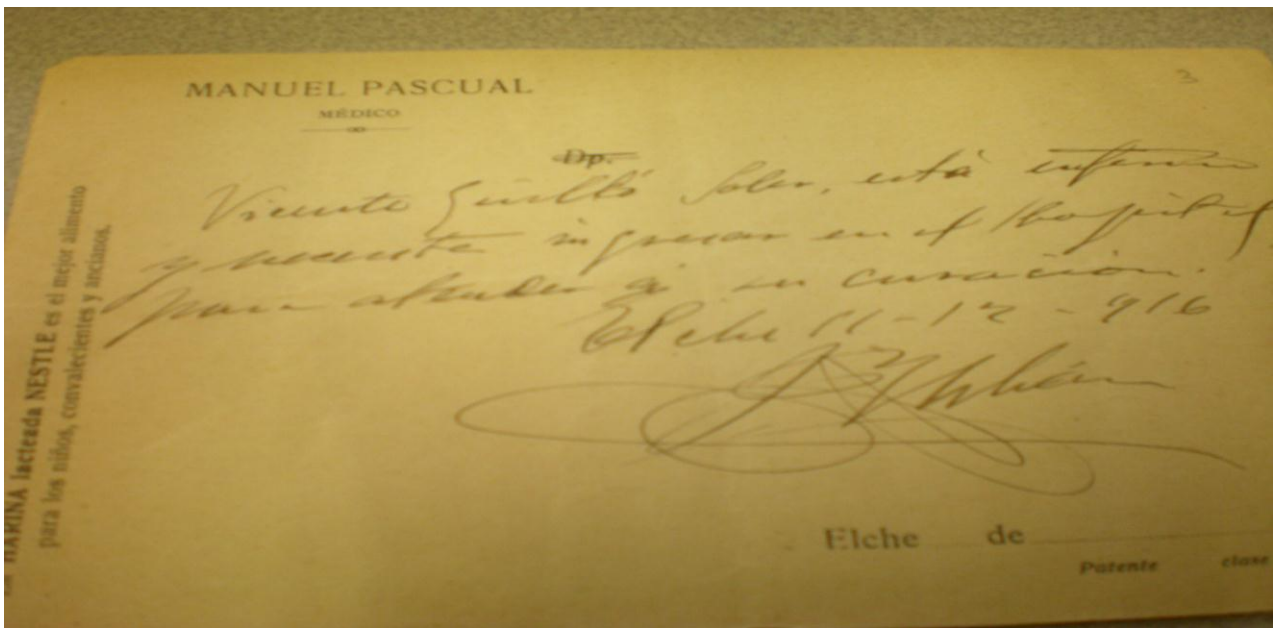 MANUEL PASCUAL
MÉDICO
3
Dp.
Vicente Guilló Soler, está enfermo
y necesita ingresar en el Hospital
para atender á su curación.
Elche 11-12-916
Elche de
Patente clase
La HARINA lacteada NESTLE es el mejor alimento
para los niños, convalecientes y ancianos.